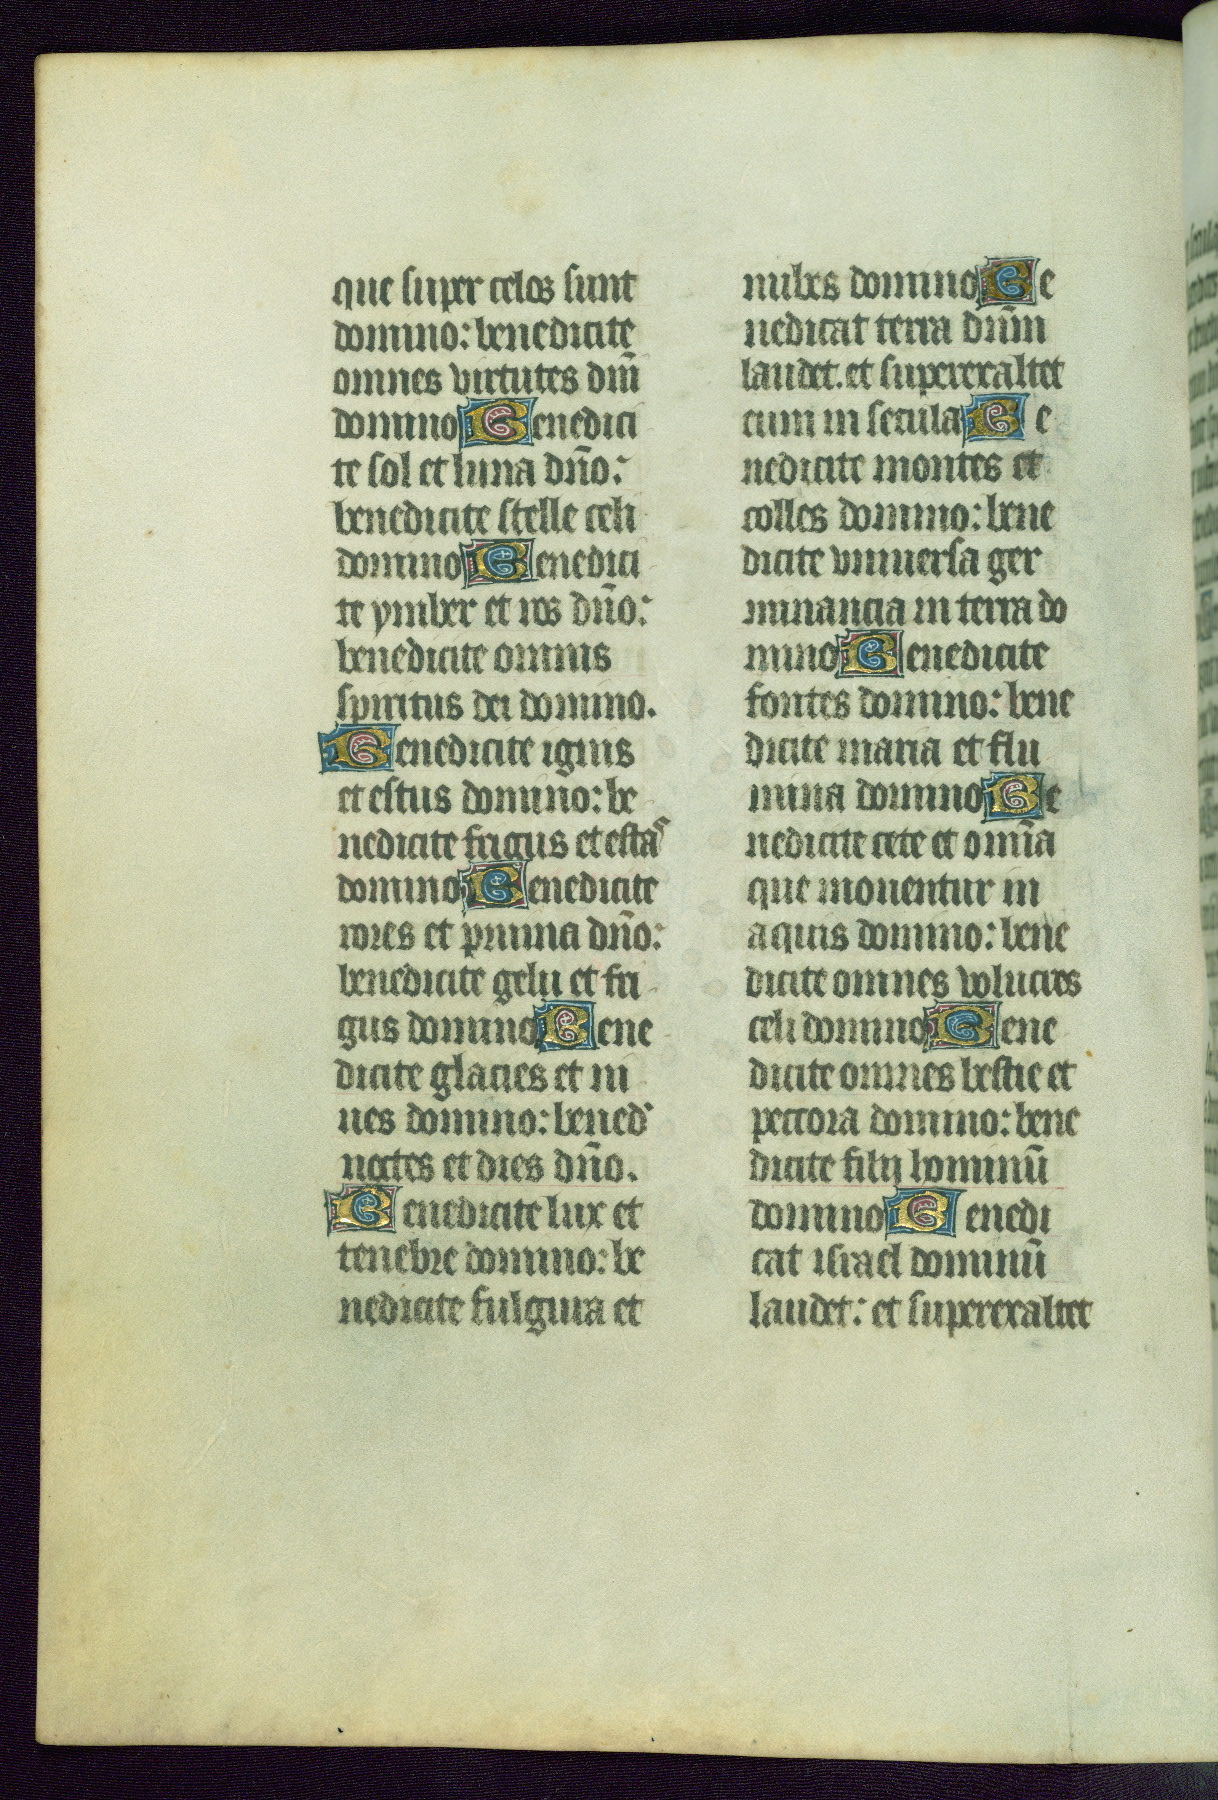 que super celos sunt
domino: benedicite
omnes virtutes dñi
domino Benedici
te sol et luna dño:
benedicite stelle celi
domino Benedici
te ymber et ros dño:
benedicite omnis
spiritus dei domino.
Benedicite ignis
et estus domino: be
nedicite frigus et estas
domino Benedicite
rores et pruina dño:
benedicite gelu et fri
gus domino Bene
dicite glacies et ni
ues domino: bened'
noctes et dies dño.
Benedicite lux et
tenebre domino: be
nedicite fulgura et
nubes domino Be
nedicat terra dñm
laudet. et superexaltet
eum in secula Be
nedicite montes et
colles domino: bene
dicite vniuersa ger
minancia in terra do
mino Benedicite
fontes domino: bene
dicite maria et flu
mina domino Be
nedicite cete et omĩa
que mouentur in
aquis domino: bene
dicite omnes volucres
celi domino Bene
dicite omnes bestie et
peccora domino: bene
dicite filij hominũ
domino Benedi
cat israel dominũ
laudet: et superexaltet